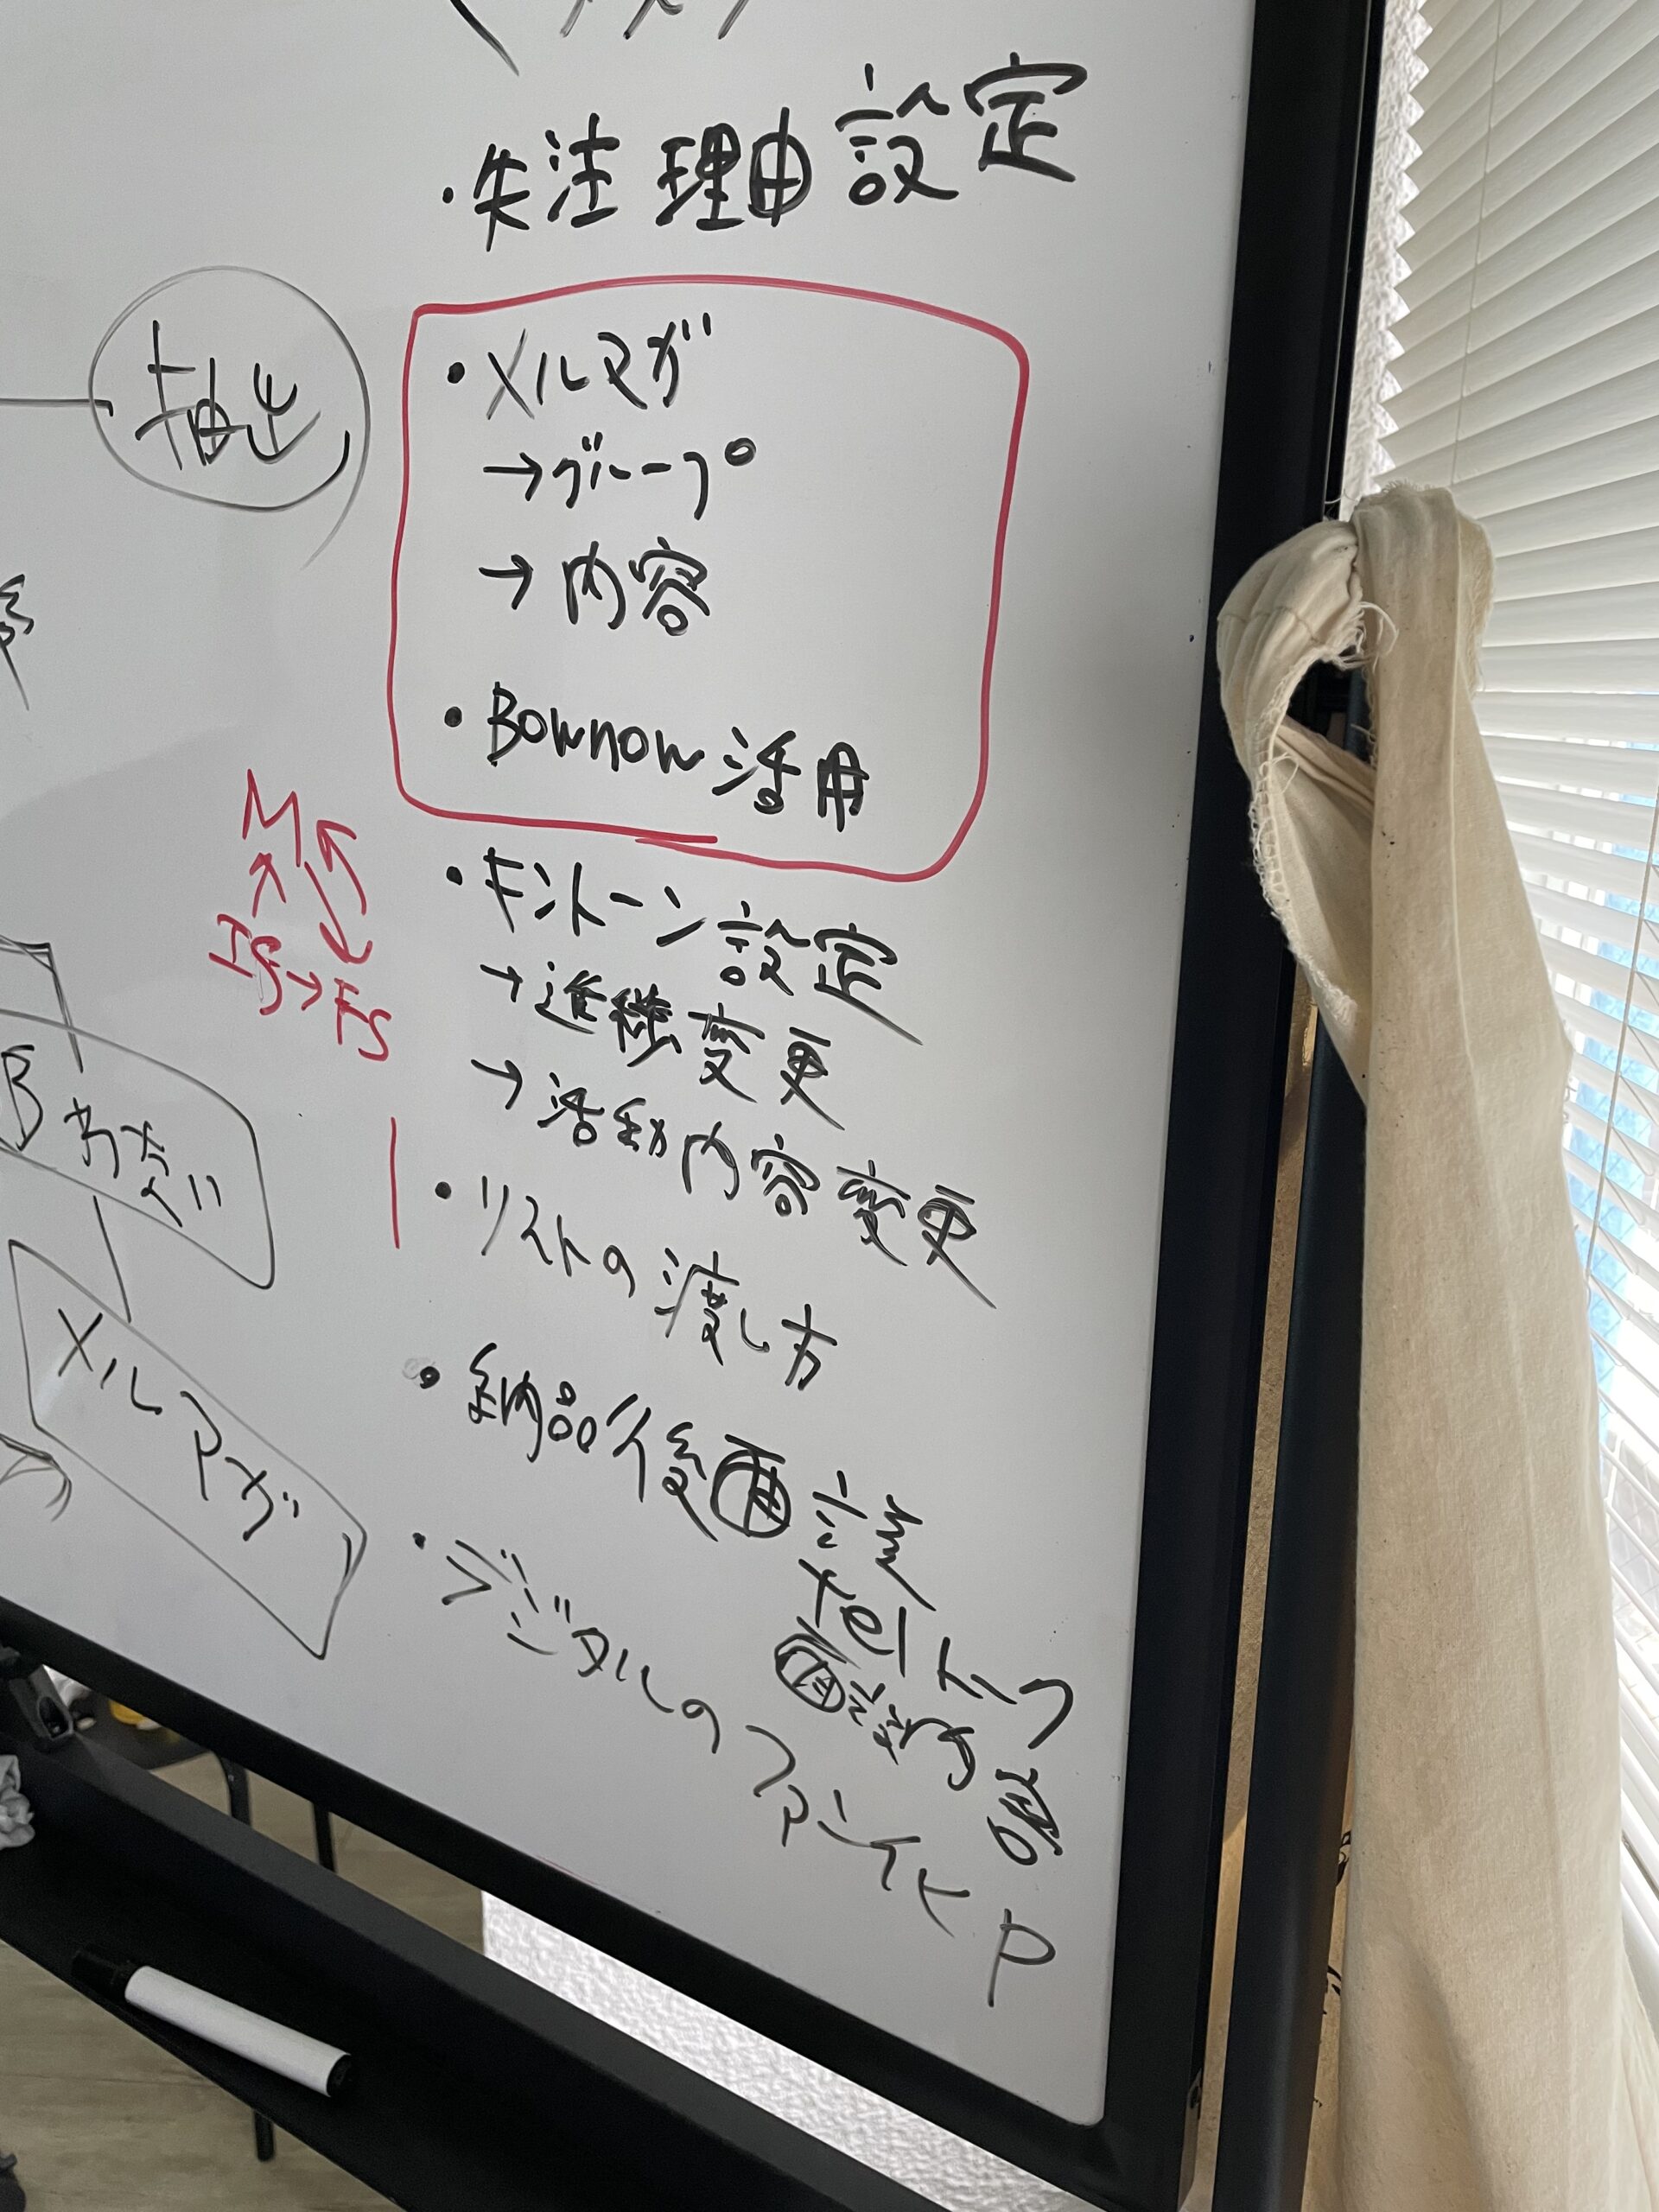 ・失注理由設定
抽出
・メルマガ
→グループ
→内容
・Bownow活用
M
IS→FS
・キントーン設定
→進種変更
→活動内容変更
・リストの渡し方
・納品後面談
面談内容
・デジタルのアンケート
B
メルマガ